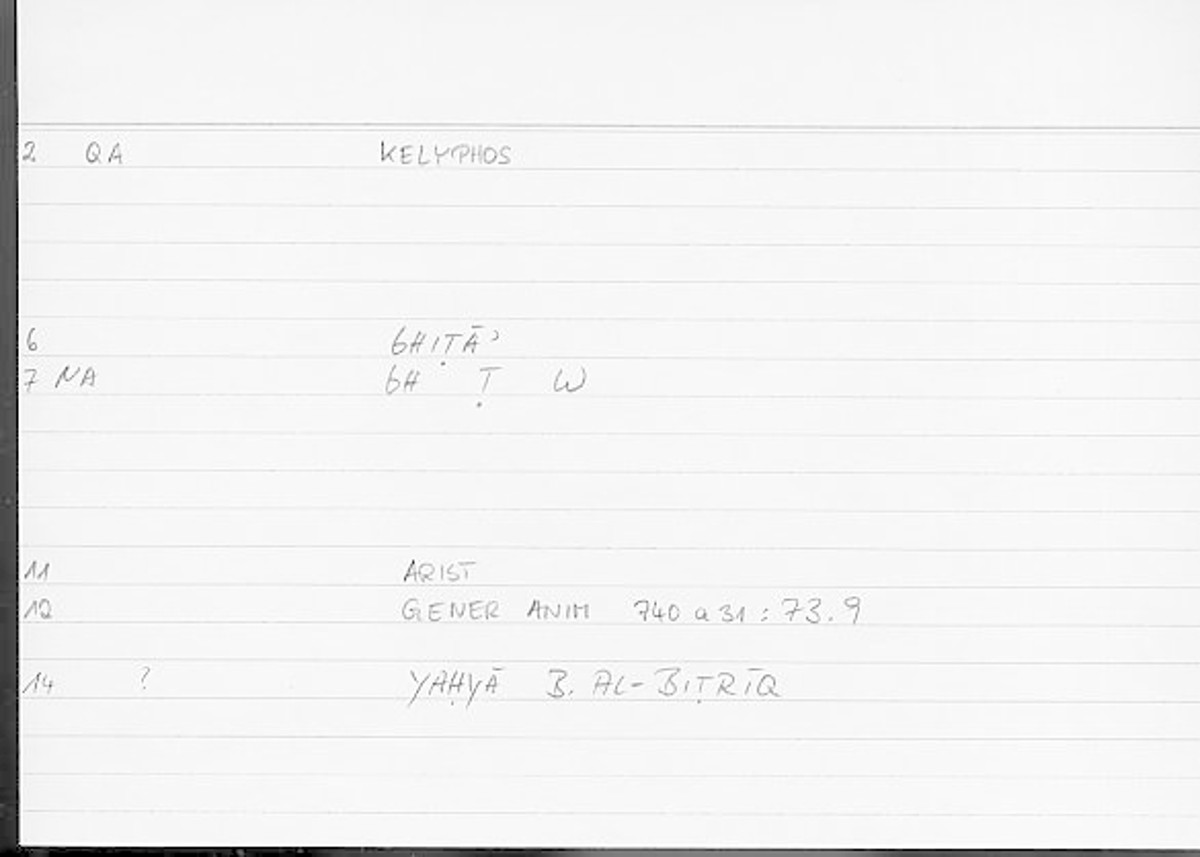 2 QA KELYPHOS
6 GHIṬĀʾ
7 NA GH Ṭ W
11 ARIST
12 GENER ANIM 740 a 31 : 73.9
14 ? YAḤYĀ B. AL-BIṬRĪQ